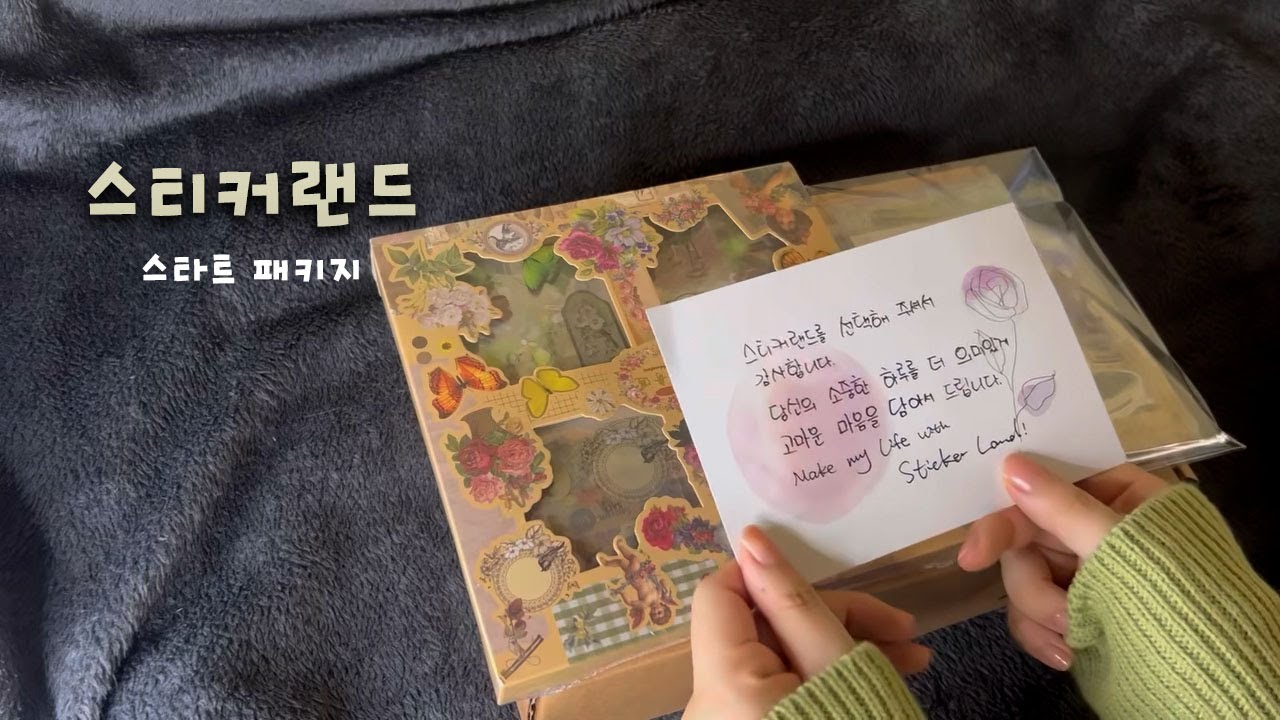 스티커랜드
스타트 패키지
스티커랜드를 선택해 주셔서
감사합니다.
당신의 소중한 하루를 더 의미있게
고마운 마음을 담아서 드립니다.
Make my life with
Sticker Land!